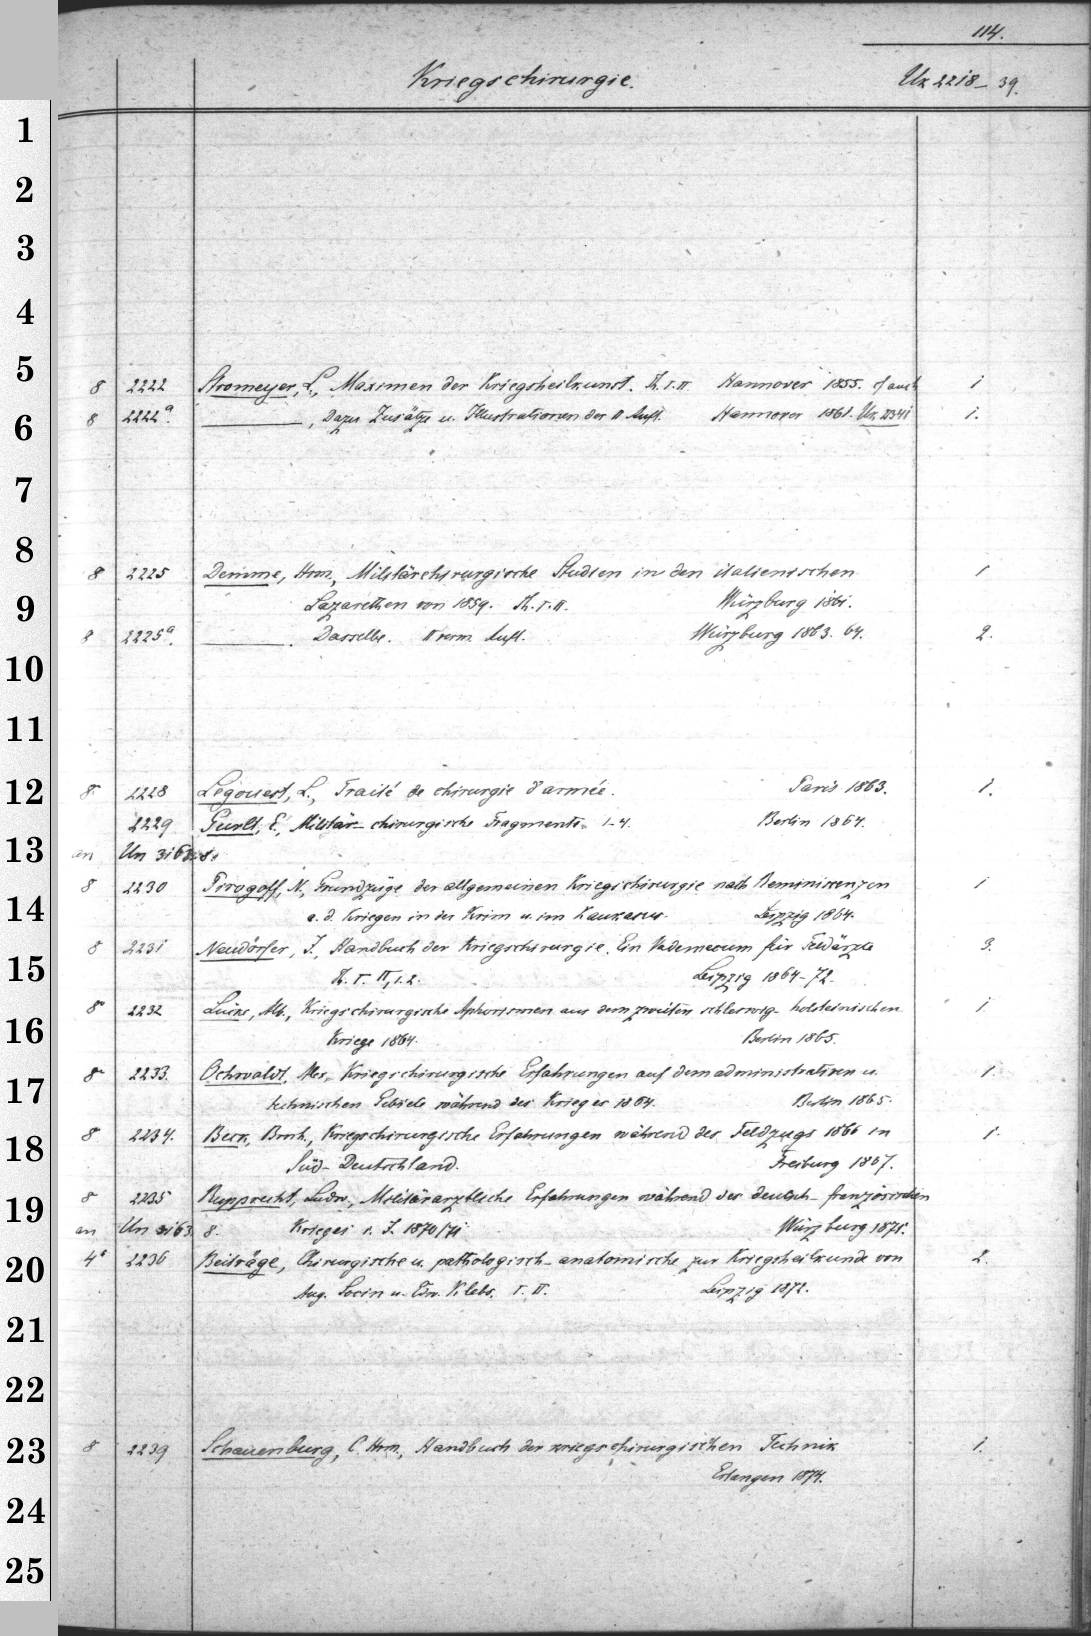 114.
Kriegschirurgie. Ux 2218-39.
1
2
3
4
5
8 2222 Stromeyer, L., Maximen der Kriegsheilkunst. Th. I. II Hannover 1855. cf auch 1
6
8 2222a ———, Dazu Zusätze u. Illustrationen der II Aufl. Hannover 1861. Ux 2234i 1.
7
8
8 2225 Demme, Hrm., Militärchirurgische Studien in den italienischen 1
9
Lazarethen von 1859. Th. I. II. Würzburg 1861.
8 2225a. ———. Dasselbe. II verm. Aufl. Würzburg 1863. 64. 2.
10
11
12
8. 2228 Legouest, L., Traité de chirurgie d'armée. Paris 1863. 1.
2229 Gurlt, E., Militär-chirurgische Fragmente. 1-4. Berlin 1864.
13
an Un 3163. 8.
8 2230 Pirogoff, N., Grundzüge der allgemeinen Kriegschirurgie nach Reminiscenzen 1
14
a. d. Kriegen in der Krim u. im Kaukasus. Leipzig 1864.
8 2231 Neudörfer, J., Handbuch der Kriegschirurgie. Ein Vademecum für Feldärzte 3.
15
Th. I. II, 1. 2. Leipzig 1864-72.
8 2232 Lücke, Alb., Kriegschirurgische Aphorismen aus dem zweiten schleswig-holsteinischen 1
16
Kriege 1864. Berlin 1865.
8 2233. Ochwaldt, Alex., Kriegschirurgische Erfahrungen auf dem administrativen u. 1.
17
technischen Gebiete während des Krieges 1864. Berlin 1865.
8 2234. Beck, Bernh., Kriegschirurgische Erfahrungen während des Feldzugs 1866 in 1.
18
Süd-Deutschland. Freiburg 1867.
8 2235 Rupprecht, Ludw., Militärärztliche Erfahrungen während des deutsch-französischen
19
an Un 3163. 8. Krieges i. J. 1870/71. Würzburg 1871.
4° 2236 Beiträge, Chirurgische u. pathologisch-anatomische zur Kriegsheilkunde von 2.
20
Aug. Socin u. Edw. Klebs. I. II. Leipzig 1872.
21
22
23
8 2239 Schauenburg, C. Hrm., Handbuch der kriegschirurgischen Technik 1.
Erlangen 1874.
24
25